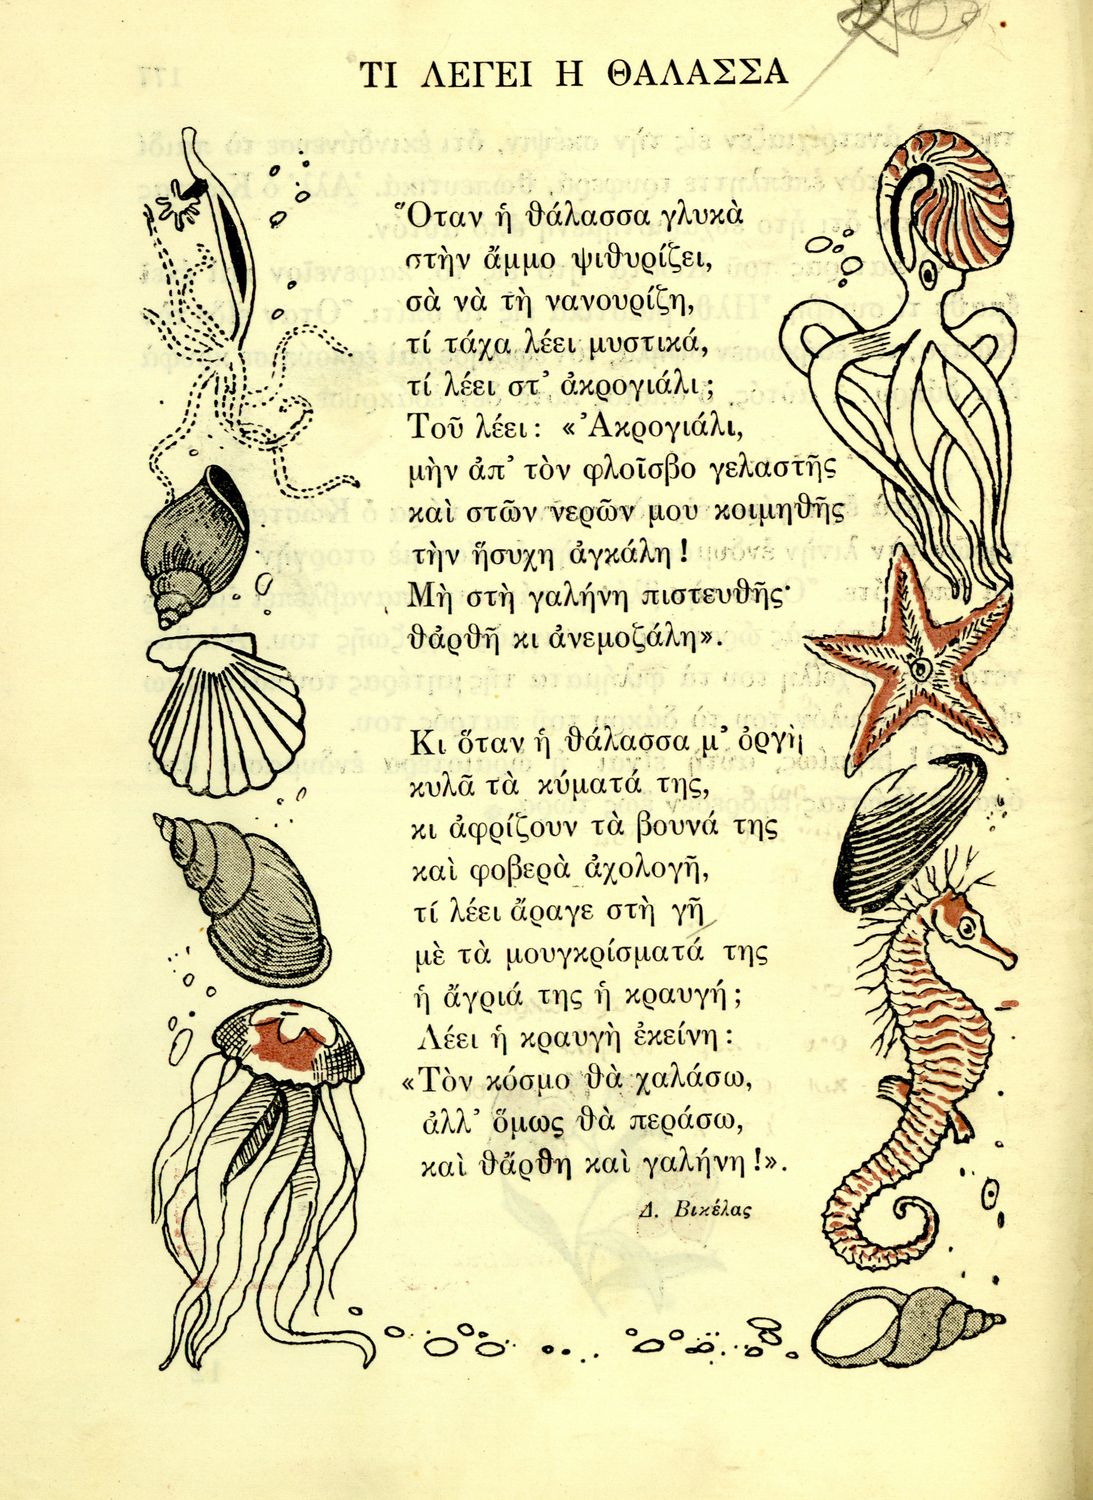 ΤΙ ΛΕΓΕΙ Η ΘΑΛΑΣΣΑ
Ὅταν ἡ θάλασσα γλυκὰ
στὴν ἄμμο ψιθυρίζει,
σὰ νὰ τὴ νανουρίζη,
τί τάχα λέει μυστικά,
τί λέει στ’ ἀκρογιάλι;
Τοῦ λέει: «Ἀκρογιάλι,
μὴν ἀπ’ τὸν φλοῖσβο γελαστῆς
καὶ στῶν νερῶν μου κοιμηθῆς
τὴν ἥσυχη ἀγκάλη!
Μὴ στὴ γαλήνη πιστευθῆς·
θἀρθῆ κι ἀνεμοζάλη».
Κι ὅταν ἡ θάλασσα μ’ ὀργὴ
κυλᾶ τὰ κύματά της,
κι ἀφρίζουν τὰ βουνά της
καὶ φοβερὰ ἀχολογῆ,
τί λέει ἄραγε στὴ γῆ
μὲ τὰ μουγκρίσματά της
ἡ ἄγριά της ἡ κραυγή;
Λέει ἡ κραυγὴ ἐκείνη:
«Τὸν κόσμο θὰ χαλάσω,
ἀλλ’ ὅμως θὰ περάσω,
καὶ θἄρθη καὶ γαλήνη!».
Δ. Βικέλας